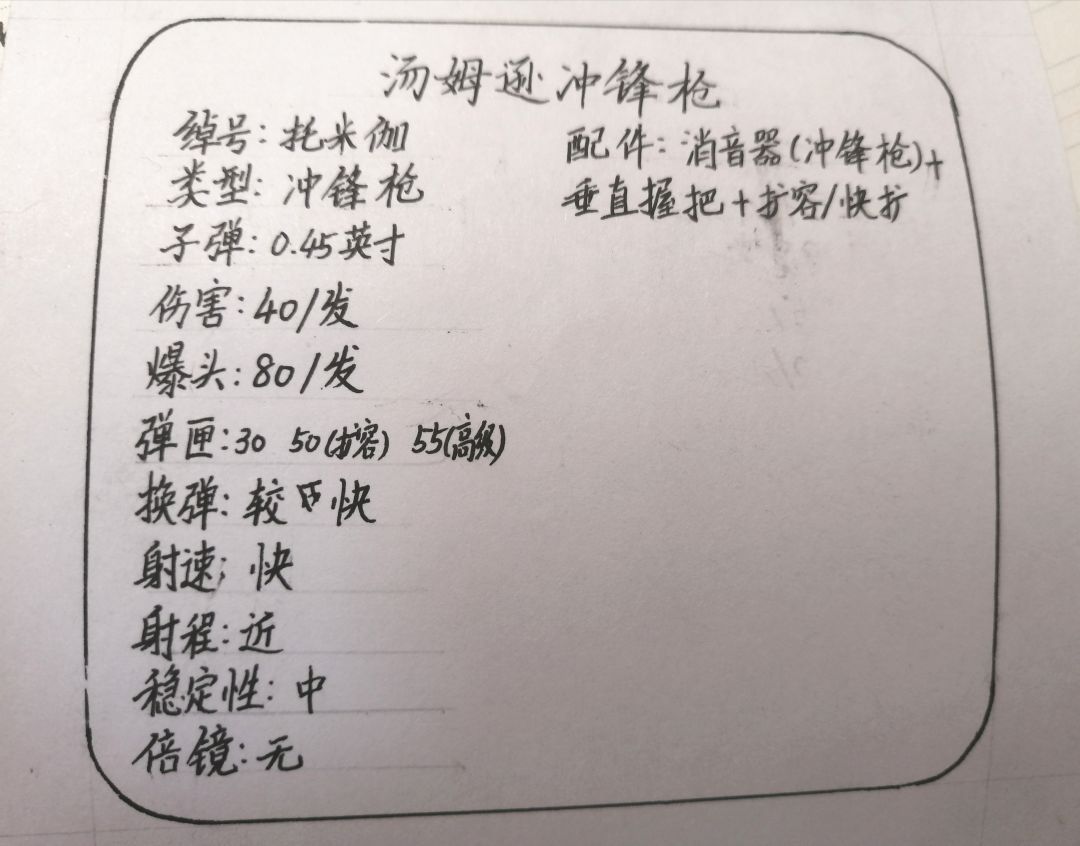 汤姆逊冲锋枪
绰号:托米伽
类型:冲锋枪
子弹:0.45英寸
伤害:40/发
爆头:80/发
弹匣:30 50(扩容) 55(高级)
换弹:较快
射速:快
射程:近
稳定性:中
倍镜:无
配件:消音器(冲锋枪)+
垂直握把+扩容/快扩